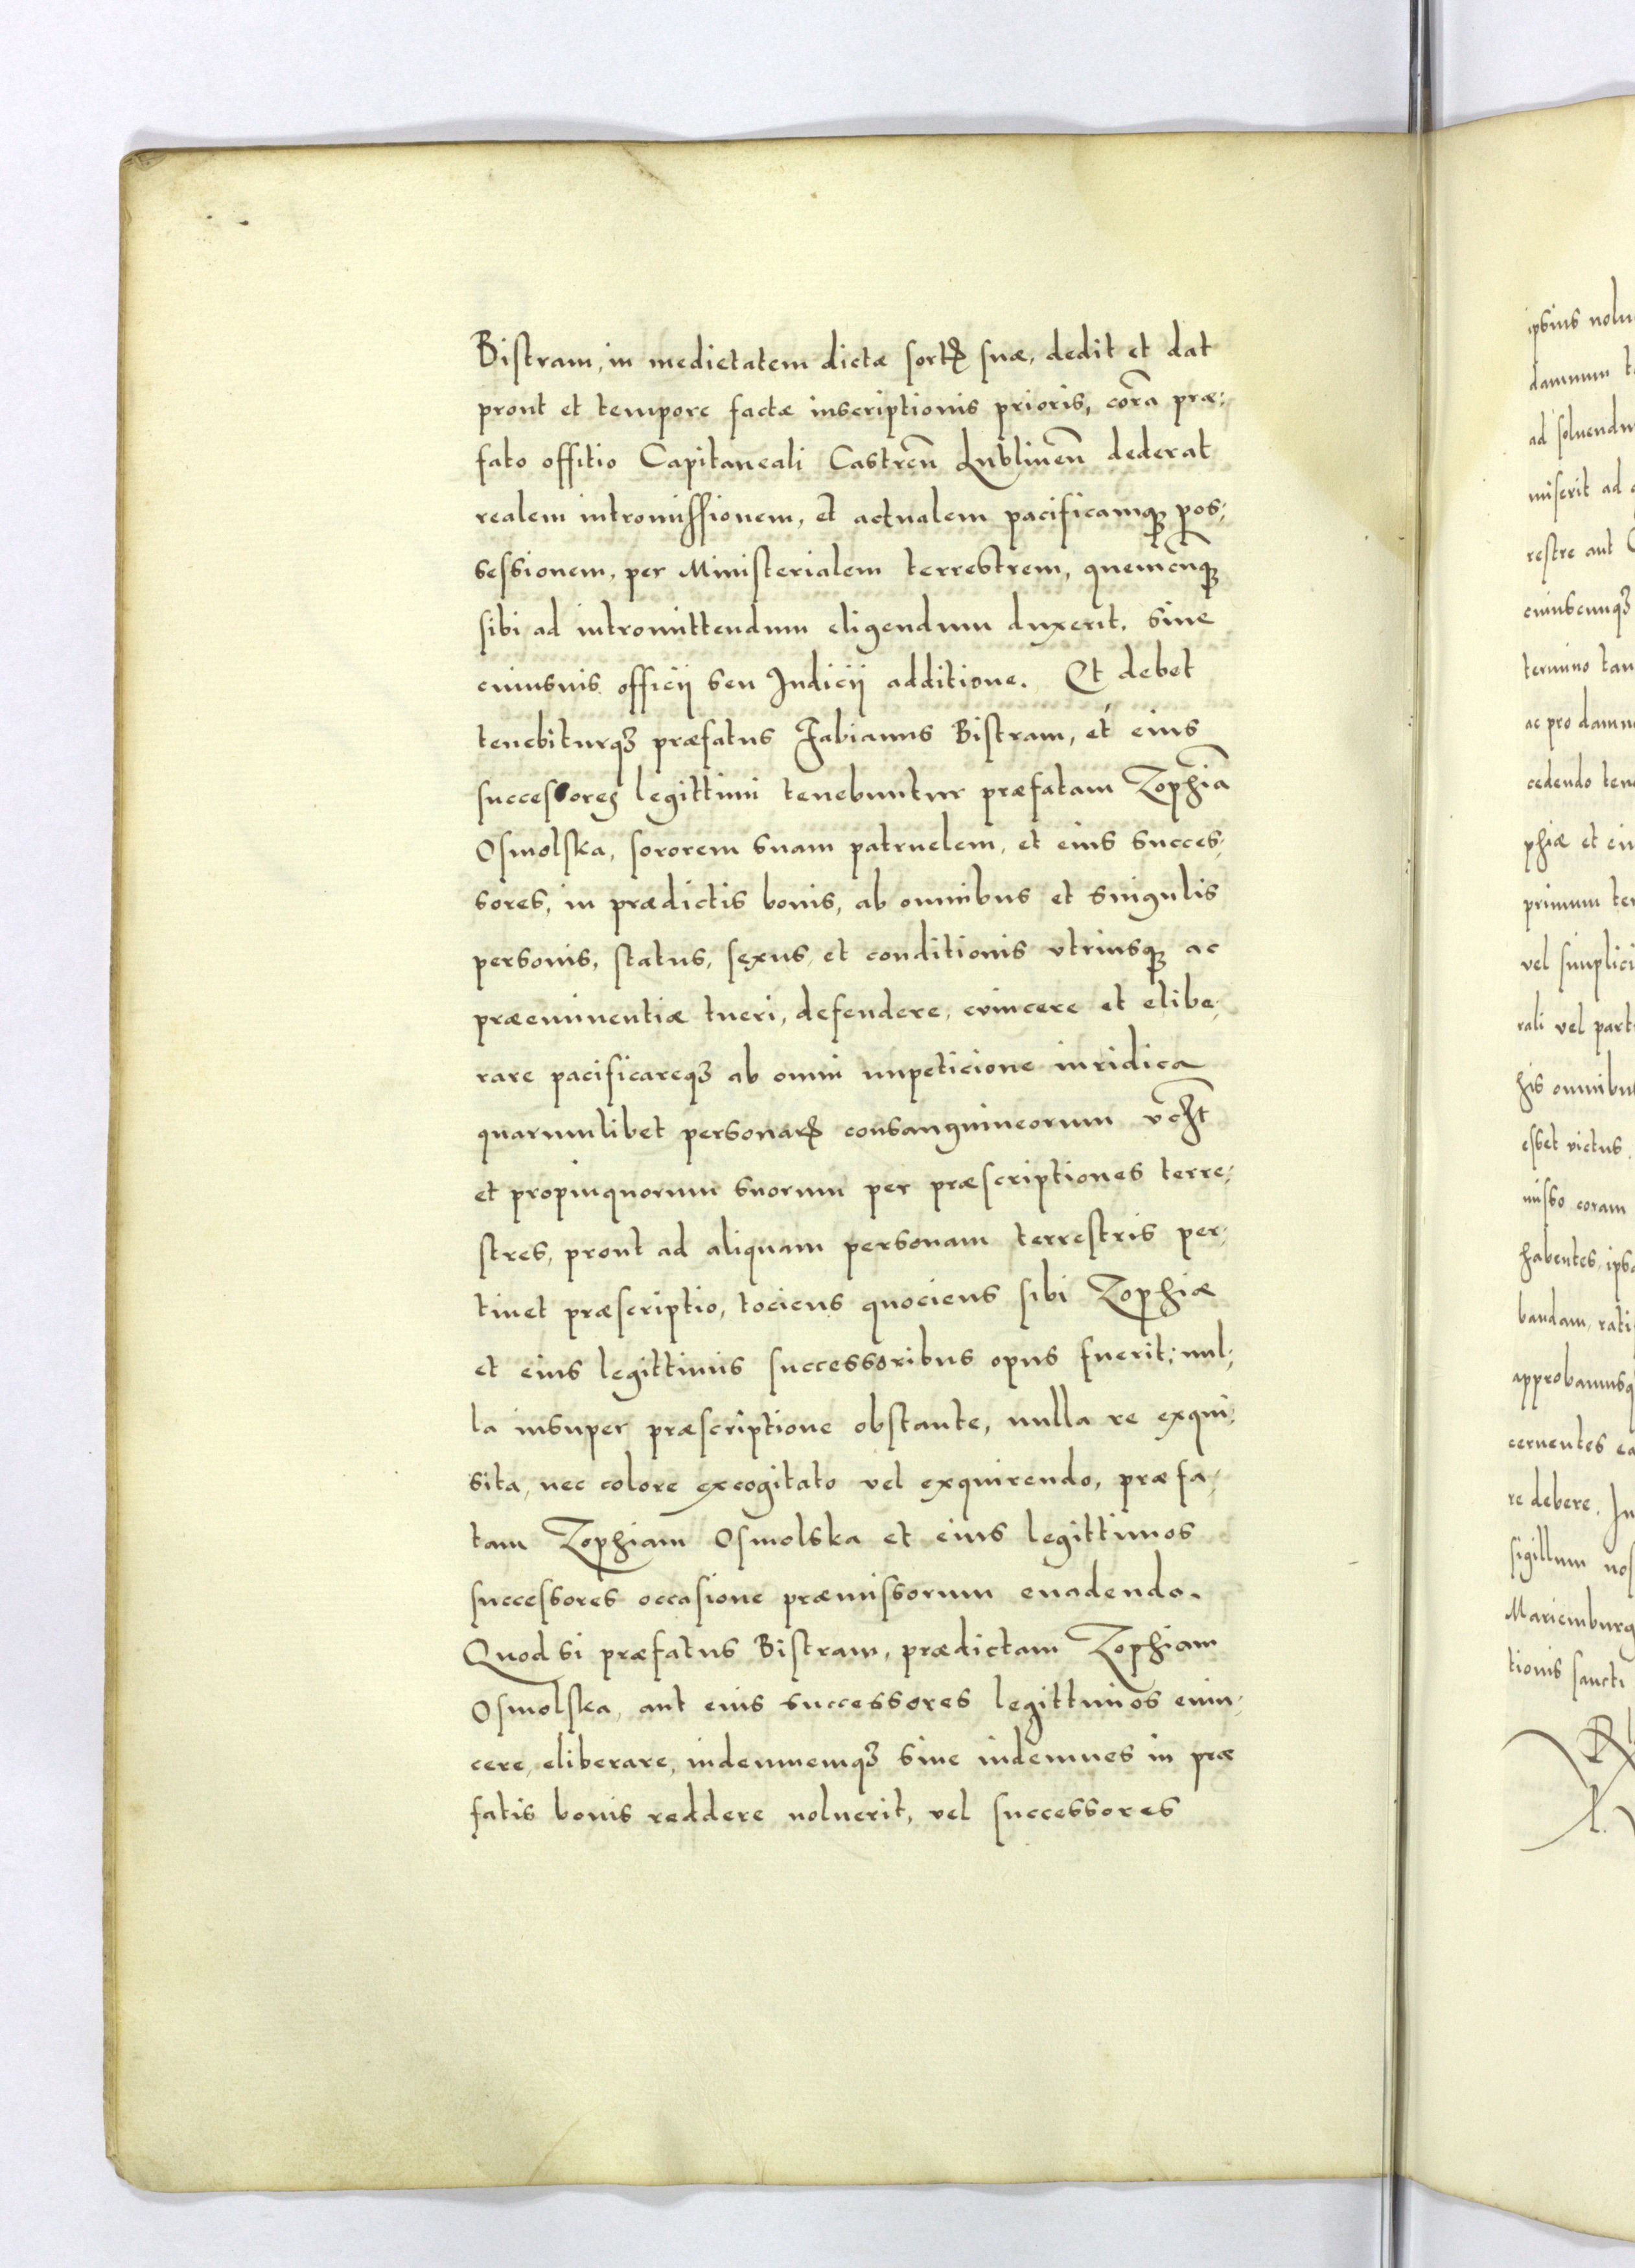 Bistram, in medietatem dictæ sortꝭ suæ, dedit et dat
prout et tempore factæ inscriptionis prioris, corã præ:
fato offitio Capitaneali Castreñ Lublineñ dederat
realem intromissionem, et actualem pacificamqꝫ pos:
sessionem, per Ministerialem terrestrem, quemcũqꝫ
sibi ad intromittendum eligendum duxerit, sine
cuiusuis officij seu Iudicij additione. Et debet
tenebiturqꝫ præfatus Fabianus Bistram, et eius
successores legittimi tenebuntur præfatam Zophiã
Osmolska, sororem suam patruelem, et eius succes:
sores, in prædictis bonis, ab omnibus et singulis
personis, status, sexus, et conditionis vtriusqꝫ ac
præeminentiæ tueri, defendere, evincere et elibe:
rare pacificareqꝫ ab omni impeticione iuridica
quarumlibet personarꝭ consanguineorum
et propinquorum suorum per præscriptiones terre:
stres, prout ad aliquam personam terrestris per:
tinet præscriptio, tociens quociens sibi Zophiæ
et eius legittimis successoribus opus fuerit; nul:
la insuper præscriptione obstante, nulla re exqui:
sita, nec colore excogitato vel exquirendo, præfa:
tam Zophiam Osmolska et eius legittimos
successores occasione præmissorum euadendo.
Quod si præfatus Bistram, prædictam Zophiam
Osmolska, aut eius successores legittimos euin:
cere, eliberare, indemnemqꝫ siue indemnes in præ
fatis bonis reddere noluerit, vel successores
ipsius nolu
damnum t
ad soluendu
miserit ad
restre aut
cuiuscunqꝫ
termino tan
ac pro damn
cedendo ten
phiæ et eiu
primum ter
vel simplici
rali vel part
his omnibu
esset victus,
misso coram
habentes, ips
bandam, rati
approbamusq
cernentes ea
re debere. In
sigillum nos
Mariemburg
tionis sancti